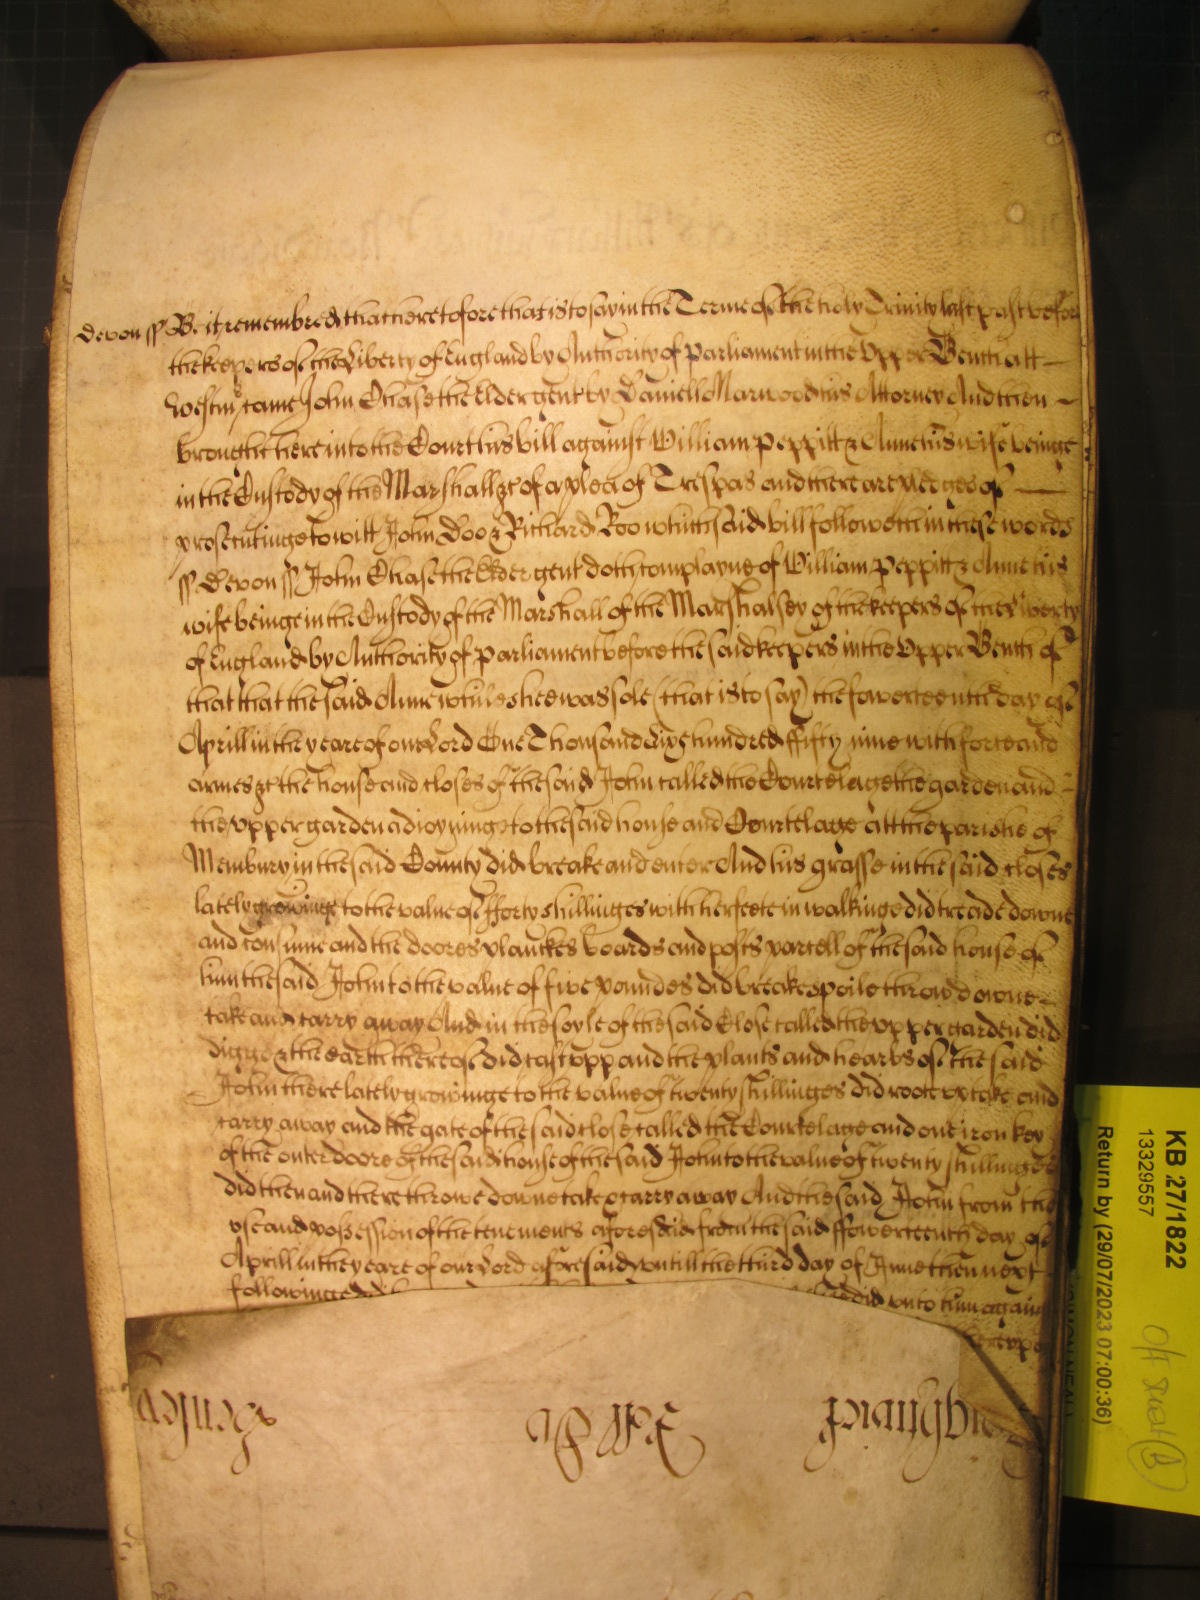 devon ss Be it remembred that heretofore that is to say in the Terme of the holy Trinity last past before
the keepers of the Liberty of England by Authority of Parliament in the Upper Bench att
Westm came John Chase the Elder gent by Daniell Marwood his Attorney And then
brought here into the Court his bill against William Peppitt & Anne his wife beinge
in the Custody of the Marshall &c of a plea of Trespas and there are pledges of
prosecutinge to witt John Doo & Richard Roo which said bill followeth in these words
ss Devon ss John Chase the Elder gent doth complayne of William Peppitt & Anne his
wife beinge in the Custody of the Marshall of the Marshalsey of the keepers of the Liberty
of England by Authority of Parliament before the said keepers in the Upper Bench of
that that the said Anne whiles shee was sole (that is to say) the fowerteenth day of
Aprill in the yeare of our Lord One Thousand Six hundred fifty nine with force and
armes &c the house and closes of the said John called the Courtelage the garden and
the Upper garden adioyninge to the said house and Courtelage att the parishe of
Membury in the said County did breake and enter And his grasse in the said closes
lately growinge to the value of fforty shillinges with her feete in walkinge did treade downe
and consume and the doores planckes boards and posts parcell of the said house of
him the said John to the value of five poundes did breake spoile throw downe
take and carry away And in the soyle of the said Close called the Upper garden did
digge & the earth thereof did cast upp and the plants and hearbs of the said
John there lately growinge to the value of twenty shillinges did roote up take and
carry away and the gate of the said close called the Courtelage and one iron key
of the outer doore of the said house of the said John to the value of twenty shillinges
did then and there throwe downe take & carry away And the said John from the
use and possession of the tenements aforesaid from the said fowerteenth day of
Aprill in the yeare of our Lord aforesaid untill the third day of June then next
followinge did unto him againe
KB 27/1822
13329557
Return by (29/07/2023 07:00:36)